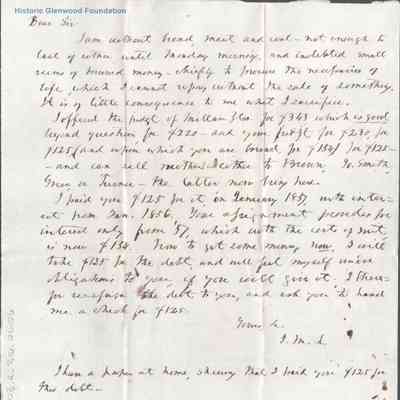 Historic Glenwood Foundation
Dear Sir
I am without bread meat and coal – not enough to
last of either until Monday morning, and indebted small
sums of borrowed money – chiefly to procure the necessaries of
life, which I cannot repay without the sale of something.
It is of little consequence to me what I sacrifice.
I offered the judgt of for $363 which is good
beyond question for $220 – and your judgt for $230 for
$125 (and upon which you are bound for $158) for $125 –
– and can sell either to Brown, Smith,
Green or – the latter now being here.
I paid you $125 for it, in January 1857, with inter-
est from Jan. 1856. Your assignment provides for
interest only from '57, which with the costs of suit,
is now $158. Now to get some money now, I will
take $125 for the debt, and will feel myself under
obligations to you, if you will give it. I there-
for the debt to you, and ask you to hand
me a check for $125.
Yours &c.
J. M. L.
I have a paper at home, showing that I paid you $125 for
this debt –